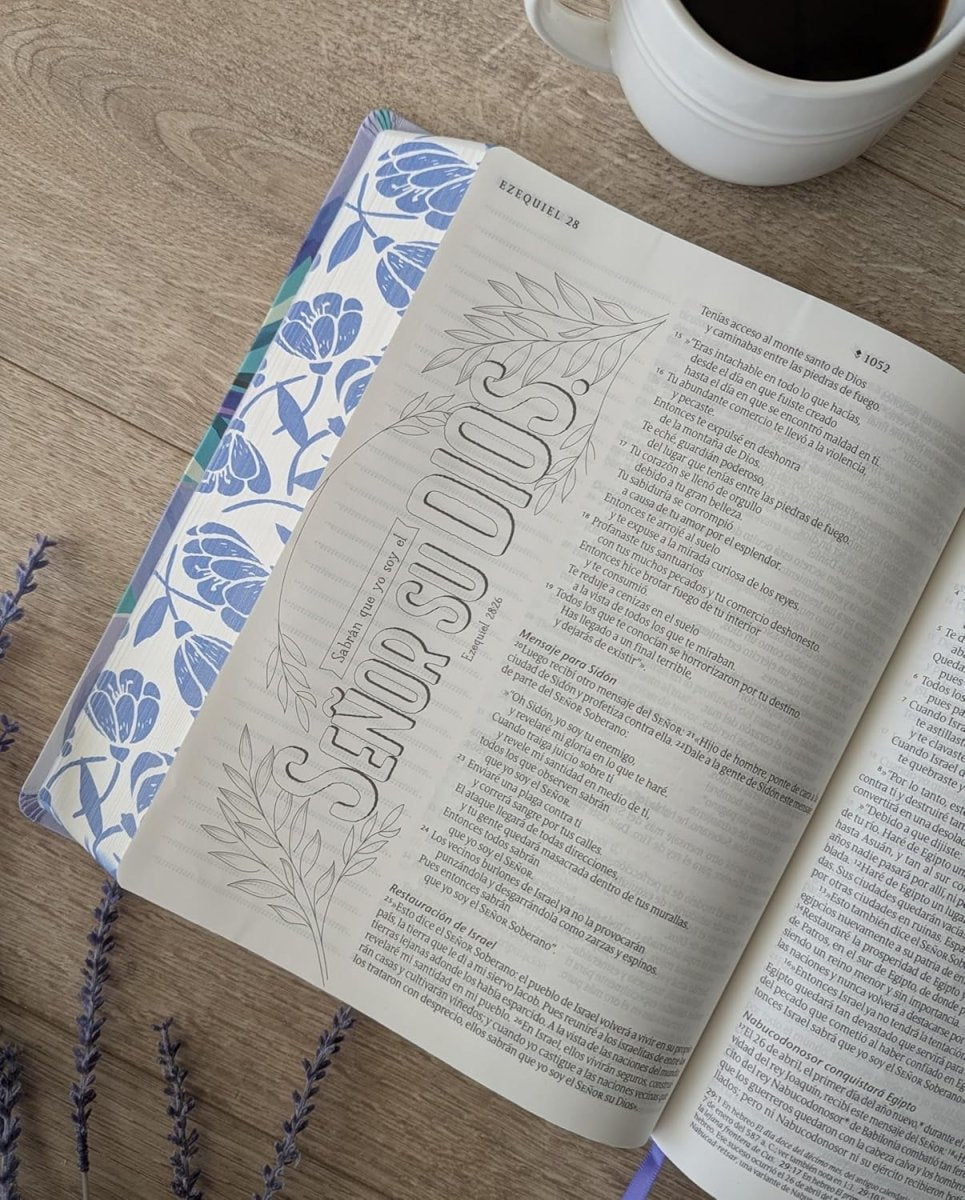 EZEQUIEL 28
1052
Sabrán que yo soy el
SEÑOR SU DIOS.
Ezequiel 28:26
Tenías acceso al monte santo de Dios
y caminabas entre las piedras de fuego.
15 »"Eras intachable en todo lo que hacías,
desde el día en que fuiste creado
hasta el día en que se encontró maldad en ti.
16 Tu abundante comercio te llevó a la violencia,
y pecaste.
Entonces te expulsé en deshonra
de la montaña de Dios.
Te eché guardián poderoso,
del lugar que tenías entre las piedras de fuego.
17 Tu corazón se llenó de orgullo
debido a tu gran belleza.
Tu sabiduría se corrompió
a causa de tu amor por el esplendor.
Entonces te arrojé al suelo
y te expuse a la mirada curiosa de los reyes.
18 Profanaste tus santuarios
con tus muchos pecados y tu comercio deshonesto.
Entonces hice brotar fuego de tu interior
y te consumió.
Te reduje a cenizas en el suelo
a la vista de todos los que te miraban.
19 Todos los que te conocían se horrorizaron por tu destino.
Has llegado a un final terrible,
y dejarás de existir"».
Mensaje para Sidón
20 Luego recibí otro mensaje del SEÑOR: 21 «Hijo de hombre, ponte de cara a la
ciudad de Sidón y profetiza contra ella. 22 Dale a la gente de Sidón este mensaje
de parte del SEÑOR Soberano:
»"Oh Sidón, yo soy tu enemigo,
y revelaré mi gloria en lo que te haré.
Cuando traiga juicio sobre ti
y revele mi santidad en medio de ti,
todos los que observen sabrán
que yo soy el SEÑOR.
23 Enviaré una plaga contra ti
y correrá sangre por tus calles.
El ataque llegará de todas direcciones,
y tu gente quedará masacrada dentro de tus murallas.
Entonces todos sabrán
que yo soy el SEÑOR.
24 Los vecinos burlones de Israel ya no la provocarán
punzándola y desgarrándola como zarzas y espinos.
Pues entonces sabrán
que yo soy el SEÑOR Soberano".
Restauración de Israel
25 »Esto dice el SEÑOR Soberano: el pueblo de Israel volverá a vivir en su propio
país, la tierra que le di a mi siervo Jacob. Pues reuniré a los israelitas de entre las
tierras lejanas adonde los había esparcido. A la vista de las naciones del mundo,
revelaré mi santidad en mi pueblo. 26 En Israel, ellos vivirán seguros, construi-
rán casas y cultivarán viñedos; y cuando yo castigue a las naciones vecinas que
los trataron con desprecio, ellos sabrán que yo soy el SEÑOR su Dios».
5 Te d
Queda
pues
6 Todos los
pues pa
7 Cuando Isra
te astillast
y te clavaste
Cuando Israel
te quebraste y
8 »"Por lo tanto, est
contra ti y destruiré tan
convertirá en una desol
»"Debido a que dijiste:
de tu río. Haré de Egipto u
hasta Asuán, y tan al sur co
años nadie pasará por allí, ni pe
blada. 12 Haré de Egipto un luga
das. Sus ciudades quedarán vacía
por otras ciudades en ruinas. Espa
13 »Esto también dice el SEÑOR Sob
egipcios nuevamente a su patria de en
14 Restauraré la prosperidad de Egipto
de Patros, en el sur de Egipto, de donde
siendo un reino menor y sin importancia.
las naciones y nunca volverá a destacarse por
16 »Entonces Israel ya no tendrá la tentación
Egipto quedará tan devastado que servirá para
del pecado que cometió al haber confiado en Eg
tonces Israel sabrá que yo soy el SEÑOR Soberano»
Nabucodonosor conquistará Egipto
17 El 26 de abril, el primer día del año nuevo,* durante el
vidad del rey Joaquín, recibí este mensaje del SEÑOR: 18 «H
cito del rey Nabucodonosor* de Babilonia combatió tan
que los guerreros quedaron con la cabeza calva y los hombr
llados; pero ni Nabucodonosor ni su ejército recibieron